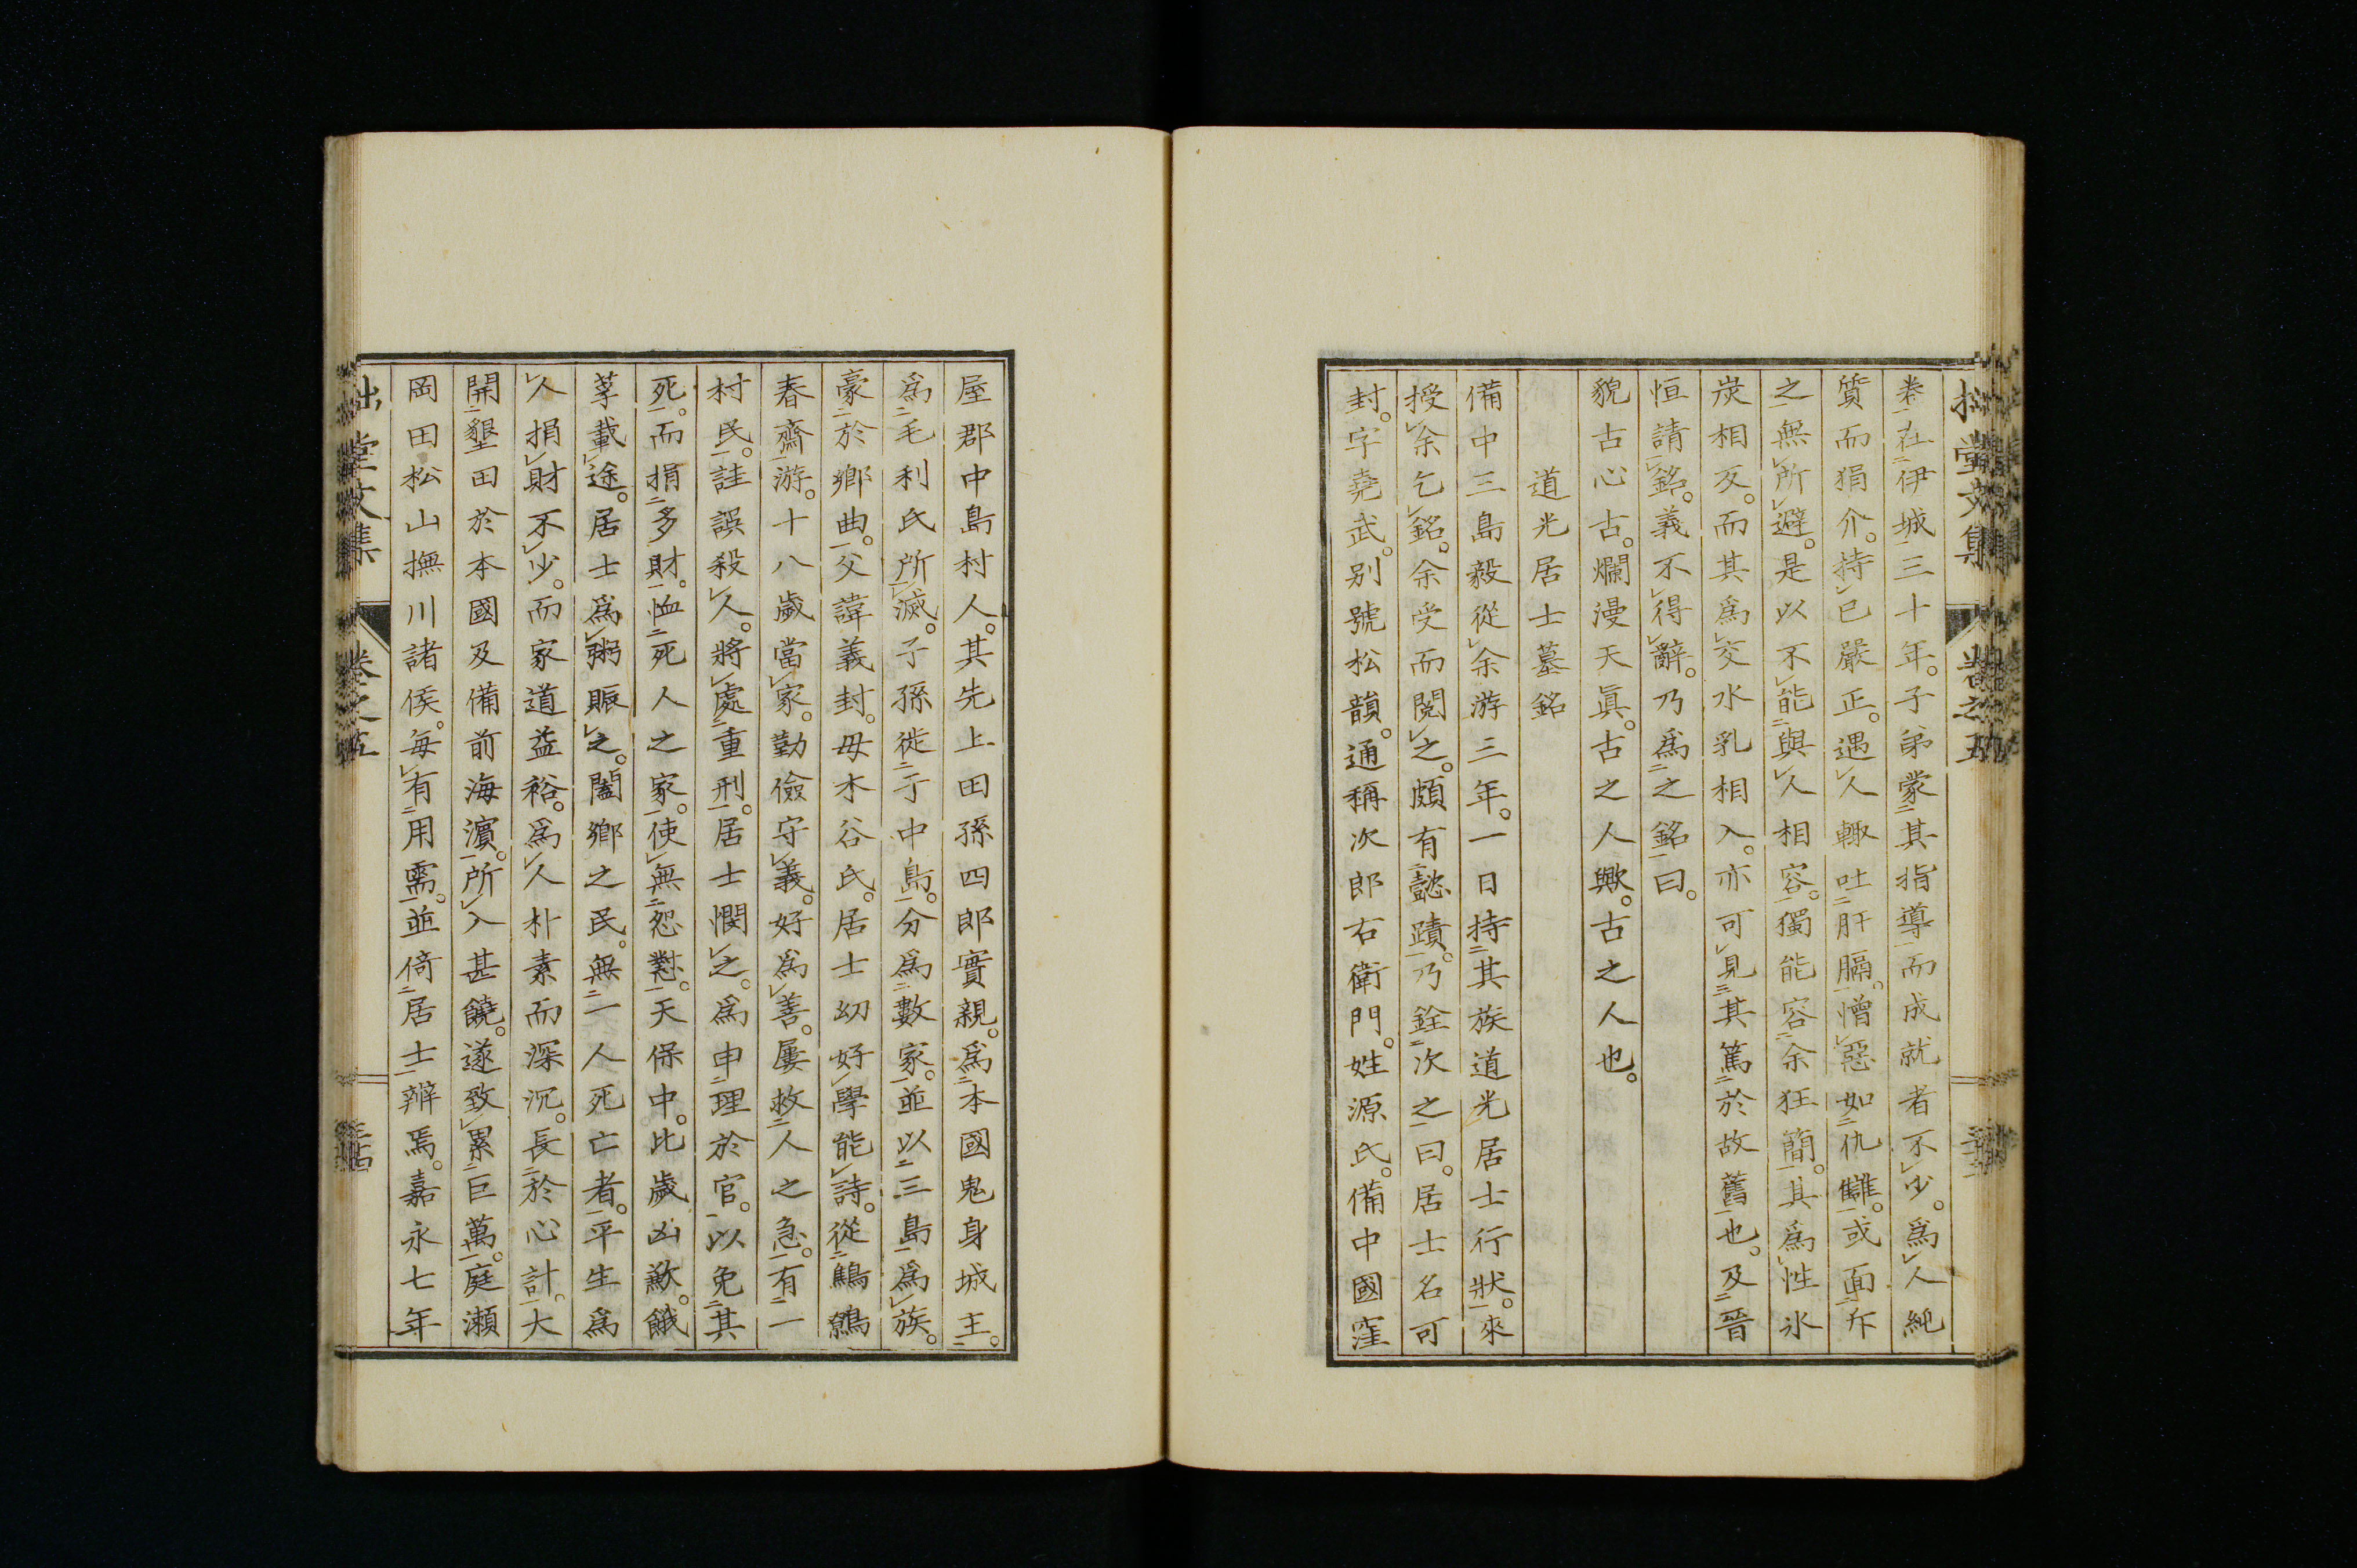 卷在伊城三十年。子弟蒙其指導而成就者不少。爲人純
質而狷介。持已嚴正。遇人輙吐肝膈。憎惡如仇讎。或面斥
之無所避。是以不能與人相容。獨能容余狂簡。其爲性氷
炭相反。而其爲交水乳相入。亦可見其篤於故舊也。及晉
恒請銘。義不得辭。乃爲之銘曰。
貌古心古。爛漫天眞。古之人歟。古之人也。
道光居士墓銘
備中三島毅從余游三年。一日持其族道光居士行狀。來
授余乞銘。余受而閱之。頗有懿蹟。乃銓次之曰。居士名可
封。字堯武。别號松韻。通稱次郎右衛門。姓源氏。備中國窪
屋郡中島村人。其先上田孫四郎實親。爲本國鬼身城主。
爲毛利氏所滅。子孫徙于中島。分爲數家。並以三島爲族。
豪於鄉曲。父諱義封。母木谷氏。居士幼好學能詩。從鷦鷯
春齋游。十八歲當家。勤儉守義。好爲善。屢救人之急。有一
村民。詿誤殺人。將處重刑。居士憫之。爲申理於官。以免其
死。而捐多財。恤死人之家。使無怨懟。天保中。比歲凶歉。餓
莩載途。居士爲粥賑之。闔鄉之民。無一人死亡者。平生爲
人捐財不少。而家道益裕。爲人朴素而深沉。長於心計。大
開墾田於本國及備前海濵。所入甚饒。遂致累巨萬。庭瀬
岡田松山撫川諸侯。毎有用需。並倚居士辨焉。嘉永七年
拙堂文集 卷之五